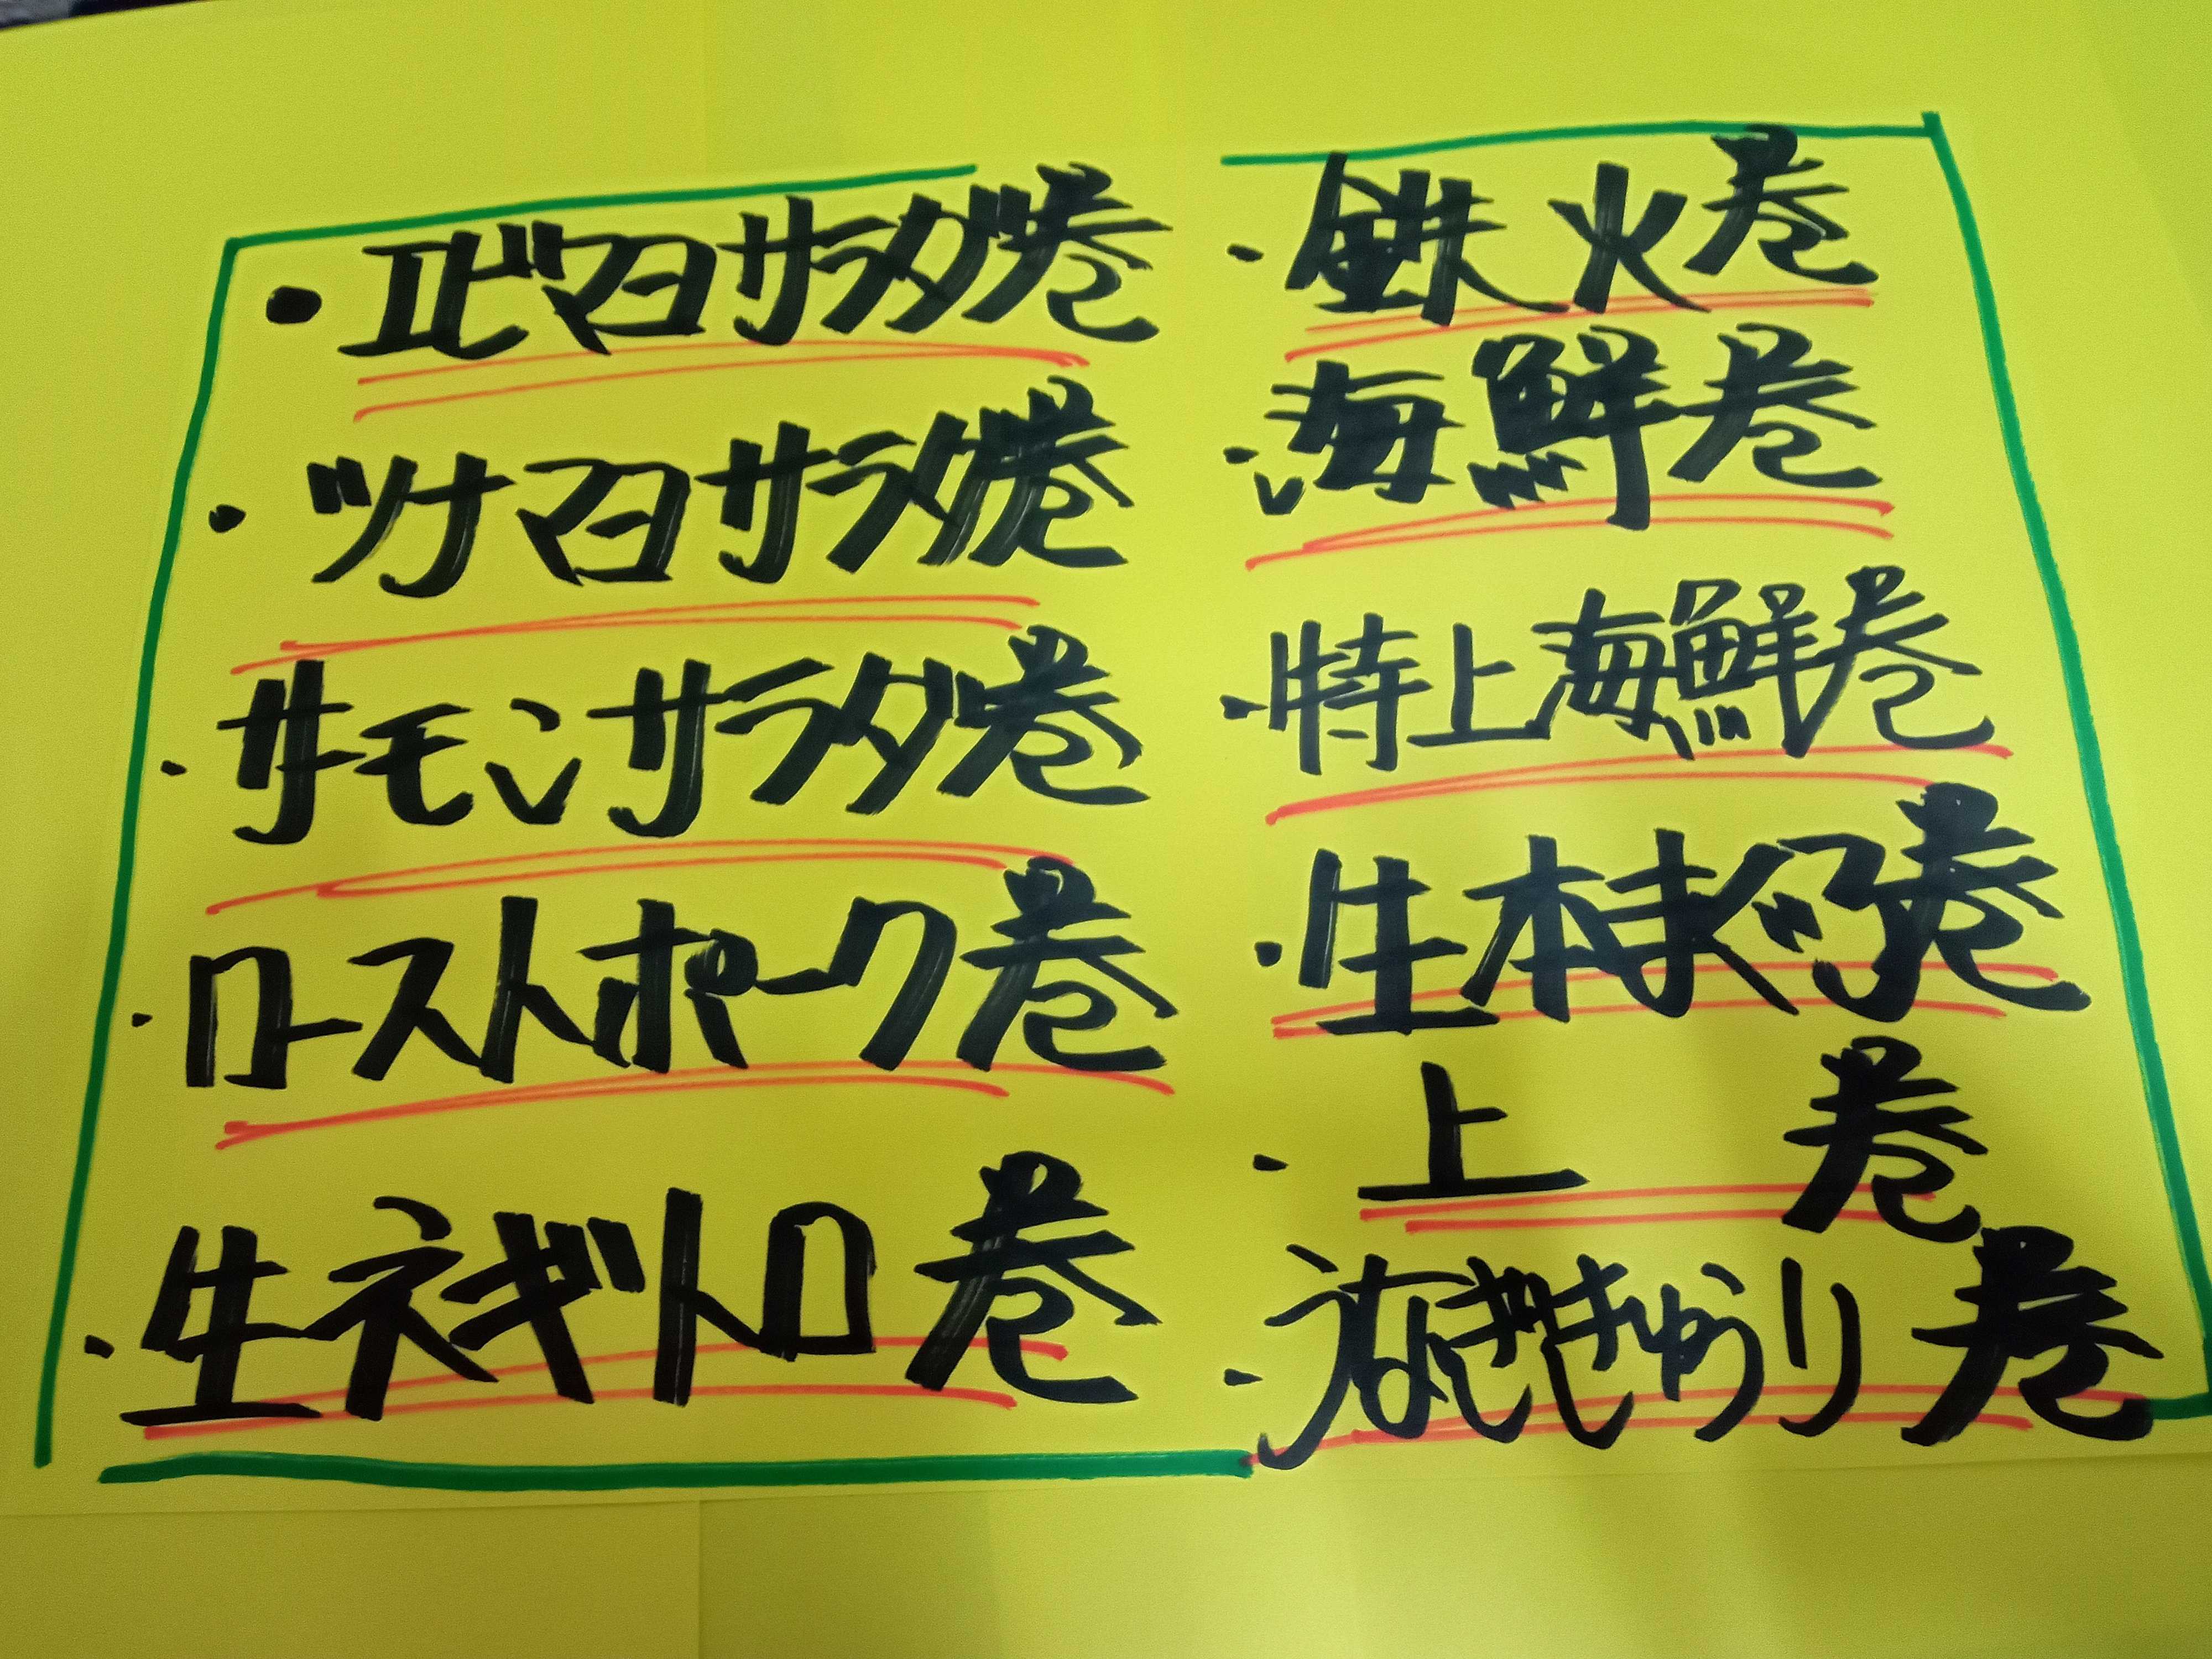 ・エビマヨサラダ巻
・ツナマヨサラダ巻
・サーモンサラダ巻
・ローストポーク巻
・生ネギトロ巻
・鉄火巻
・海鮮巻
・特上海鮮巻
・生本まぐろ巻
・上 巻
・うなぎきゅうり巻